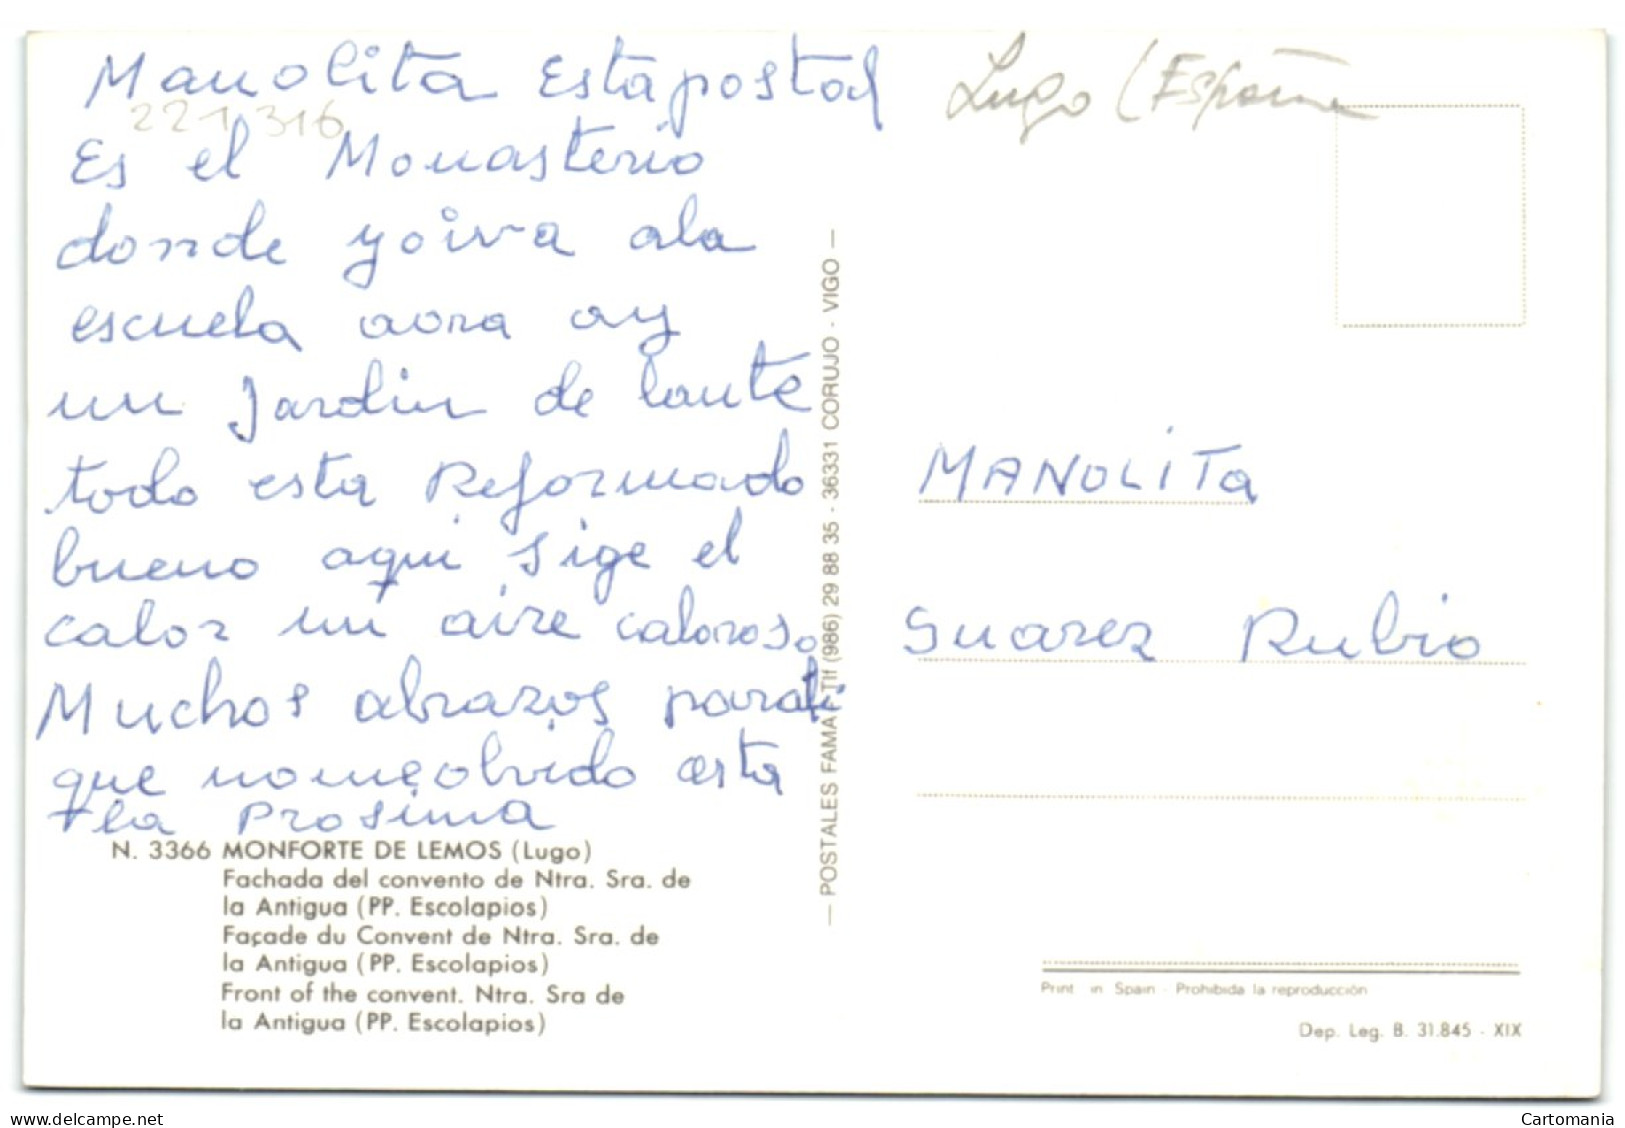 Manolita Esta postal
221 316
Es el Monasterio
donde yoiva ala
escuela aora ay
un Jardin de lante
todo esta Reformado
bueno aqui sige el
calor un aire caloroso
Muchos abrazos parati
que nomeolvido asta
la Prosima
N. 3366 MONFORTE DE LEMOS (Lugo)
Fachada del convento de Ntra. Sra. de
la Antigua (PP. Escolapios)
Façade du Convent de Ntra. Sra. de
la Antigua (PP. Escolapios)
Front of the convent. Ntra. Sra de
la Antigua (PP. Escolapios)
— POSTALES FAMA - Tlf (986) 29 88 35 - 36331 CORUJO - VIGO —
Lugo (España
MANOLITA
Suarez Rubio
Print in Spain - Prohibida la reproducción
Dep. Leg. B. 31.845 - XIX
Cartomania